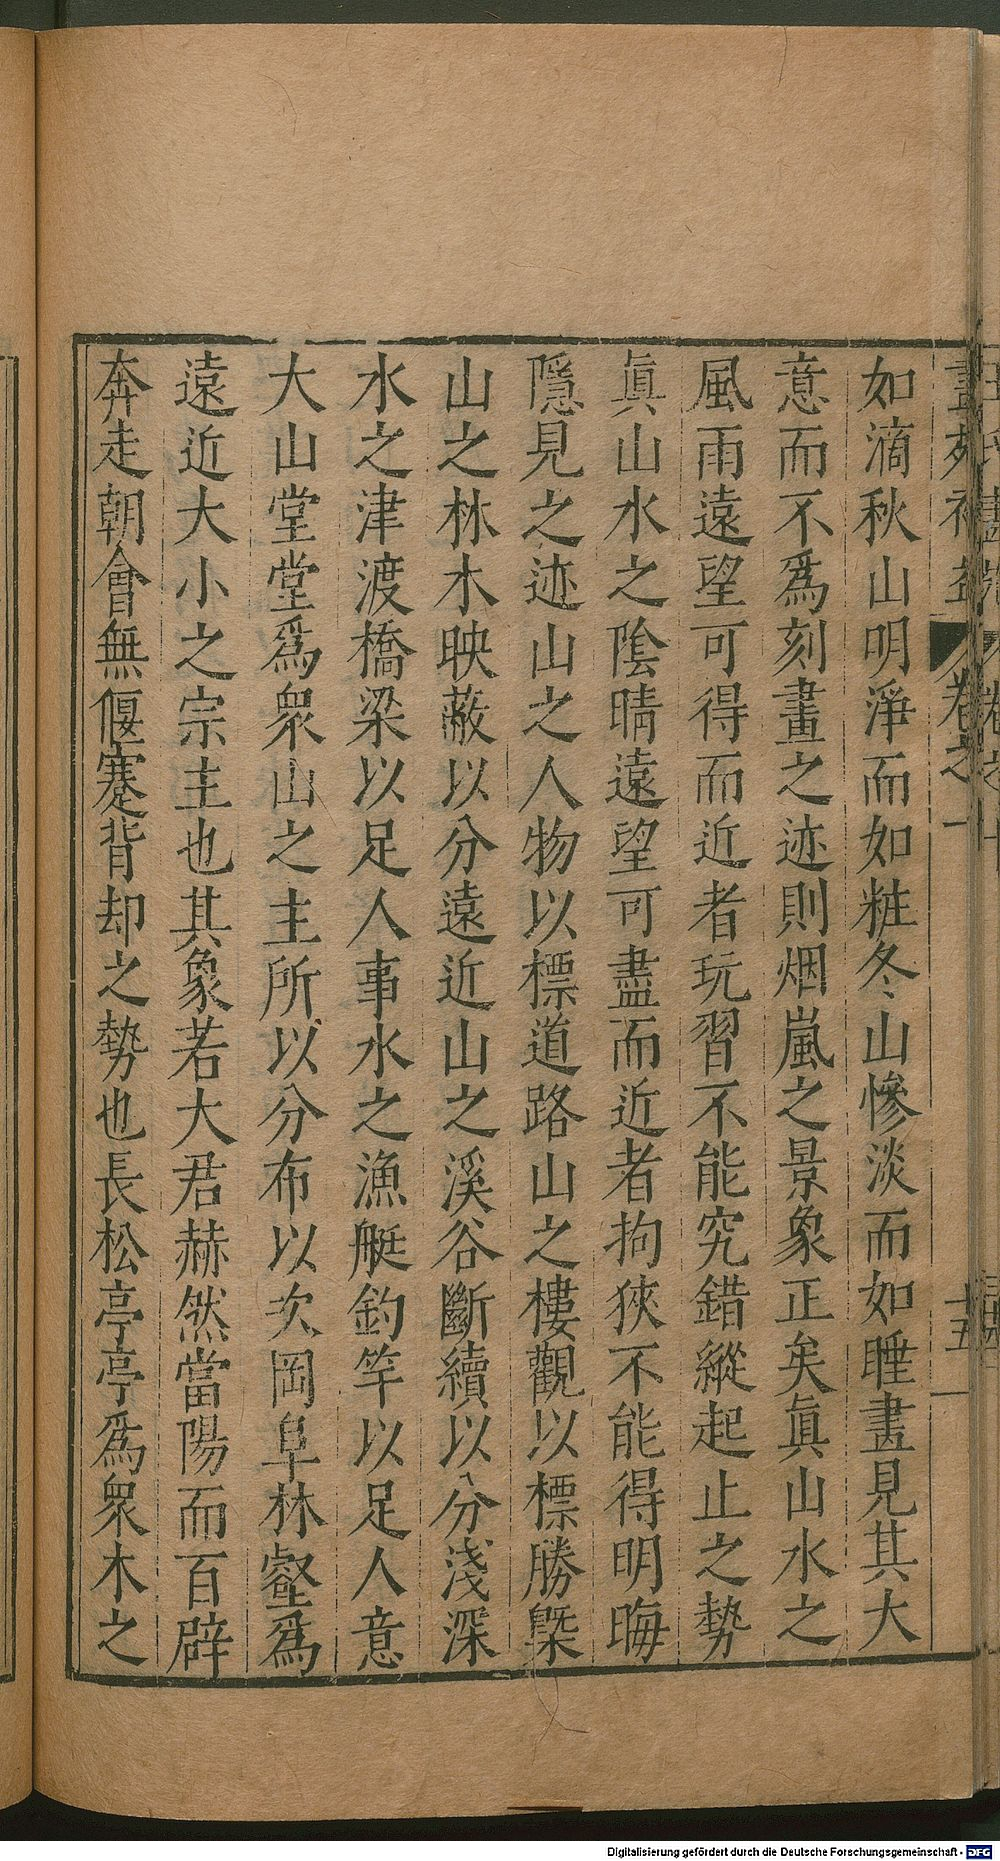 畫苑補益 卷之一 十五
如滴秋山明淨而如粧冬山慘淡而如睡畫見其大
意而不爲刻畫之迹則烟嵐之景象正矣眞山水之
風雨遠望可得而近者玩習不能究錯縱起止之勢
眞山水之陰晴遠望可盡而近者拘狹不能得明晦
隱見之迹山之人物以標道路山之樓觀以標勝槩
山之林木映蔽以分遠近山之溪谷斷續以分淺深
水之津渡橋梁以足人事水之漁艇釣竿以足人意
大山堂堂爲衆山之主所以分布以次岡阜林壑爲
遠近大小之宗主也其象若大君赫然當陽而百辟
奔走朝會無偃蹇背却之勢也長松亭亭爲衆木之
Digitalisierung gefördert durch die Deutsche Forschungsgemeinschaft - DFG